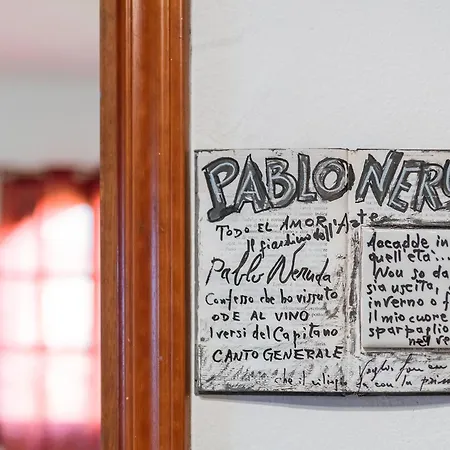 PABLO NERU
TODO EL AMOR
Il giardino dell'Arte
Pablo Neruda
Confesso che ho vissuto
ODE AL VINO
I versi del Capitano
CANTO GENERALE
Accadde in
quell'età...
Non so da
sia uscita,
inverno o f
Il mio cuore
sparpaglio
nel ve
Voglio fare con
che il ciliegi